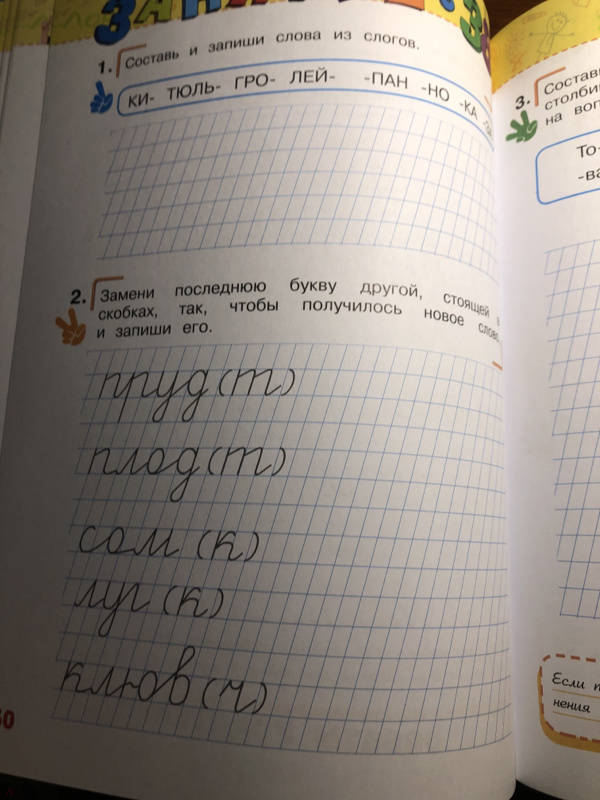 1. Составь и запиши слова из слогов.
КИ- ТЮЛЬ- ГРО- ЛЕЙ- -ПАН -НО -КА
2. Замени последнюю букву другой, стоящей в
скобках, так, чтобы получилось новое слово,
и запиши его.
пруд(т)
плод(т)
сом (к)
луг (к)
клюв(ч)
3. Составь
столби
на воп
То-
-ва
Если п
нения